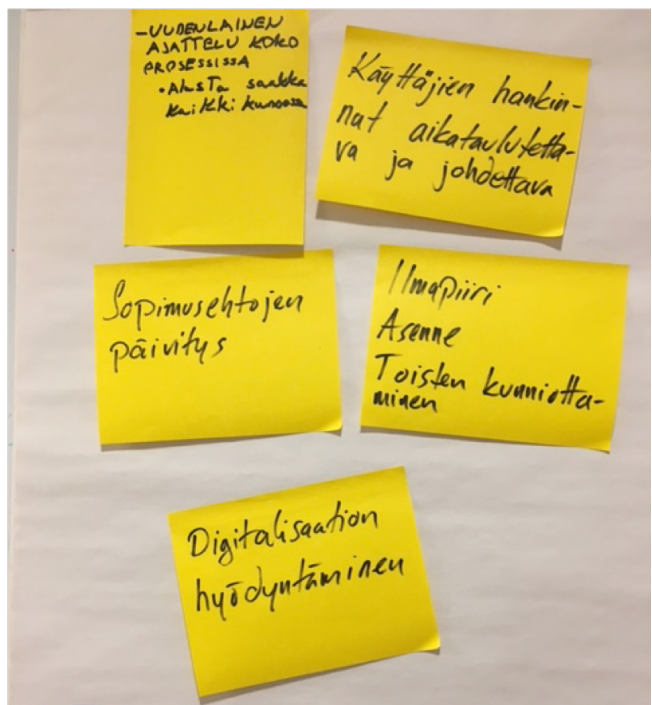 -UUDENLAINEN
AJATTELU KOKO
PROSESSISSA
• Alusta saakka
kaikki kunnossa
Käyttäjien hankin-
nat aikataulutetta-
va ja johdettava
Sopimusehtojen
päivitys
Ilmapiiri
Asenne
Toisten kunnioitta-
minen
Digitalisaation
hyödyntäminen